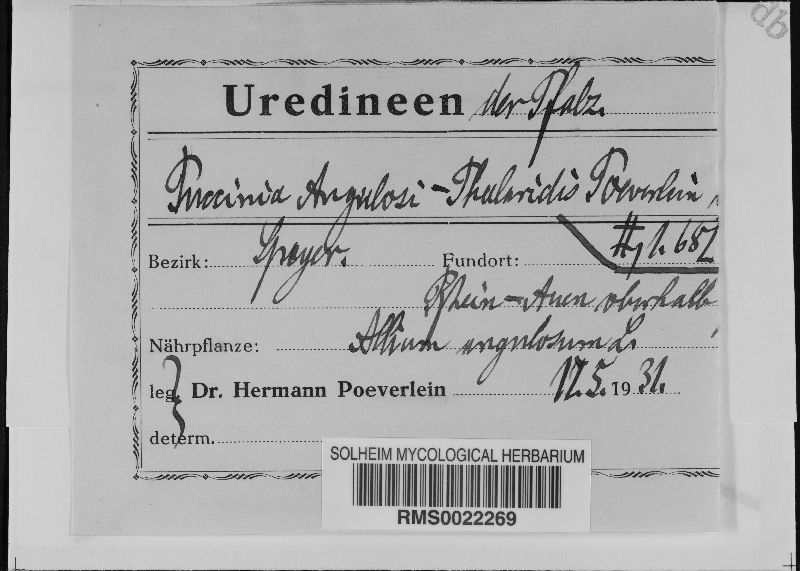 db
Uredineen der Pfalz.
Puccinia Angulosi-Phalaridis Poeverlein
Bezirk: Speyer. Fundort:
Rhein-Auen oberhalb
Nährpflanze: Allium angulosum L.
leg. Dr. Hermann Poeverlein 17.5.1931.
determ.
SOLHEIM MYCOLOGICAL HERBARIUM
RMS0022269